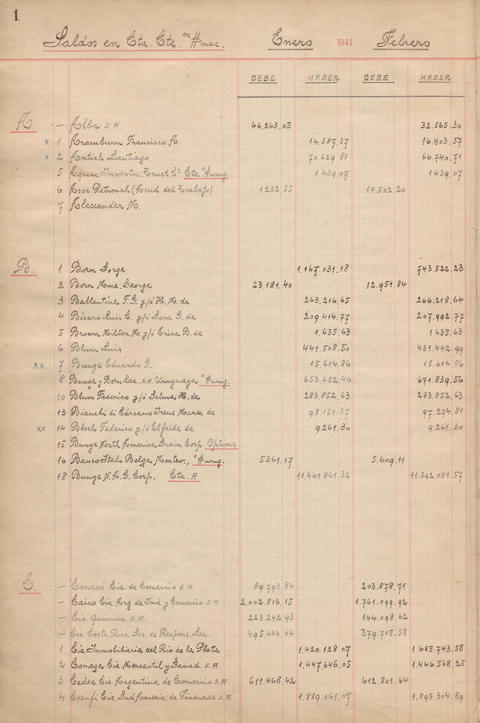 1
Saldos en Cta. Cte. m/n nac. Enero 1941 Febrero
DEBE HABER DEBE HABER
A — Alba S.A. 46,243.05 32.565.30
x 1 Aramburu Francisco A. 14.387.37 16.403.57
x 2 Antich Santiago 70.629.81 66.740.71
5 Investm. Trust Cta. 1.439.07 1439.07
6 Asoc. Patronal (Accid. del Trabajo) 1232.55 14.502.20
7 Alexander N.
B. 1 Born Jorge 1.167.031.18 743.522.23
2 Born Mme. George 23.181.40 12.951.84
3 Ballentine F.G. y/o H.M. de 263.216.65 266.218.64
4 Bisaro Luis C. y/o Sara G. de 209.414.77 207.992.77
5 Brown Milton M. y/o Erica B. de 1.635.63 1.635.63
6 Blum Luis 441.508.50 431.442.99
xx 7 Bunge Eduardo G. 15.614.86 15.614.86
8 Bunge y Born Lda. S.A. Uruguaya 653.452.46 671.839.56
10 Blum Federico y/o Selma H. de 283.852.63 283.852.63
13 98.151.37 97.274.81
xx 14 Bloch Federico y/o Elfride de 9261.30 9.261.30
15 Bunge North America Grain Corp. Options
16 Banco Italo Belga Montev., 5361.17 5.609.11
18 Bunge N.A.G. Corp. Cta. A 11.441.861.32 11.392.081.57
C — Comacó Cía. de Comercio S.A. 89,793.86 203.878.71
— Cairo Cía. Arg. de Ind. y Comercio S.A. 2.002.816.15 1.761.099.92
— Cía. Química S.A. 223.242.93 144.098.62
— Cía. Costa Rica Lda. 495.644.66 379.715.58
1 Cía. Inmobiliaria del Río de la Plata 1.420.128.07 1.685.743.58
2 Comega Cía. Mercantil y Ganad. S.A. 1.447.646.05 1.446.568.25
3 Cadec Cía. Argentina de Comercio S.A. 611.468.42 612.801.64
4 Cosufi Cía. Sudamericana de Finanzas S.A. 1.889.061.07 1.895.304.89